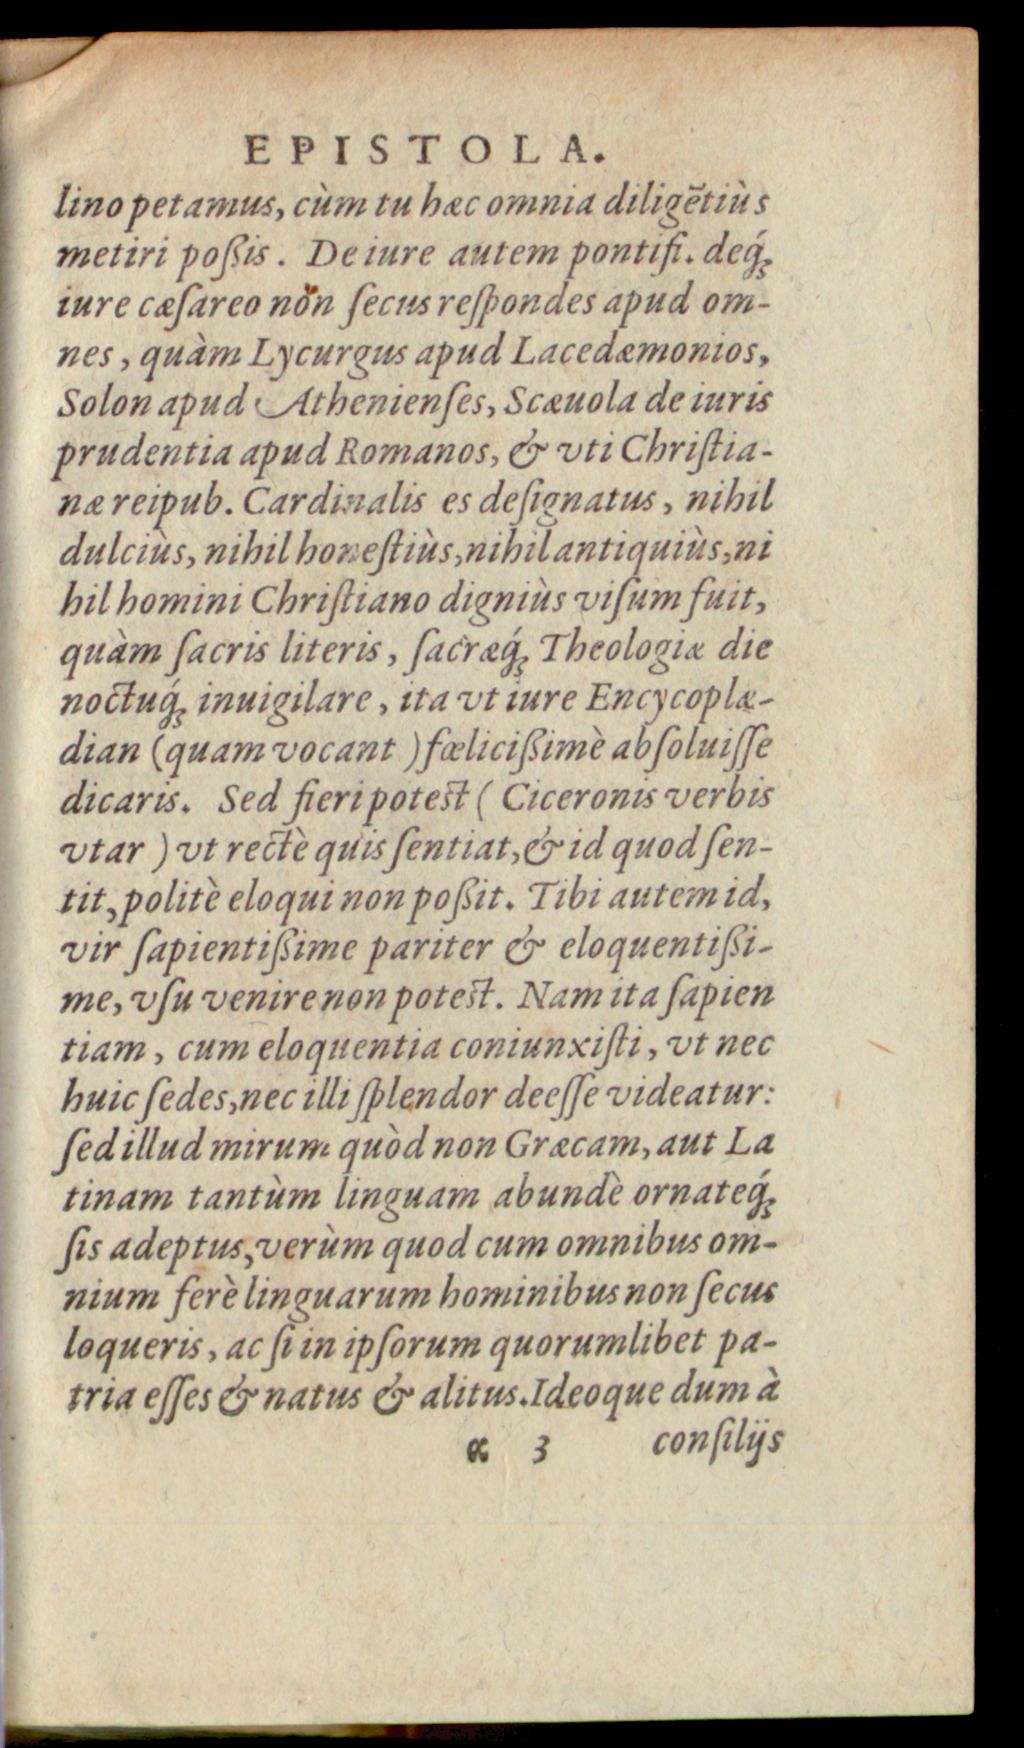 EPISTOLA.
lino petamus, cùm tu hæc omnia diligẽtiùs
metiri poßis. De iure autem pontifi. deq́ꝫ
iure cæſareo non ſecus reſpondes apud om-
nes, quàm Lycurgus apud Lacedæmonios,
Solon apud Athenienſes, Scæuola de iuris
prudentia apud Romanos, & vti Chriſtia-
næ reipub. Cardinalis es deſignatus, nihil
dulciùs, nihil honeſtiùs, nihil antiquiùs, ni
hil homini Chriſtiano digniùs viſum fuit,
quàm ſacris literis, ſacræq́ꝫ Theologiæ die
noctuq́ꝫ inuigilare, ita vt iure Encycoplæ-
dian (quam vocant) fœlicißimè abſoluiſſe
dicaris. Sed fieri poteſt (Ciceronis verbis
vtar) vt rectè quis ſentiat, & id quod ſen-
tit, politè eloqui non poßit. Tibi autem id,
vir ſapientißime pariter & eloquentißi-
me, vſu venire non poteſt. Nam ita ſapien
tiam, cum eloquentia coniunxiſti, vt nec
huic ſedes, nec illi ſplendor deeſſe videatur:
ſed illud mirum quòd non Græcam, aut La
tinam tantùm linguam abundè ornateq́ꝫ
ſis adeptus, verùm quod cum omnibus om-
nium ferè linguarum hominibus non ſecus
loqueris, ac ſi in ipſorum quorumlibet pa-
tria eſſes & natus & alitus. Ideoque dum à
α 3 conſilijs